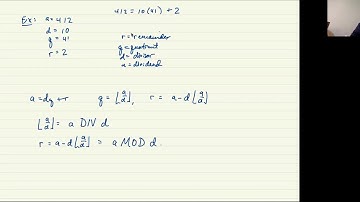 Ex: a=412
412 = 10(41) + 2
d = 10
q = 41
r = 2
r = remainder
q = quotient
d = divisor
a = dividend
a = dq + r    q = ⌊a/d⌋, r = a - d⌊a/d⌋
⌊a/d⌋ = a DIV d
r = a - d⌊a/d⌋ = a MOD d.